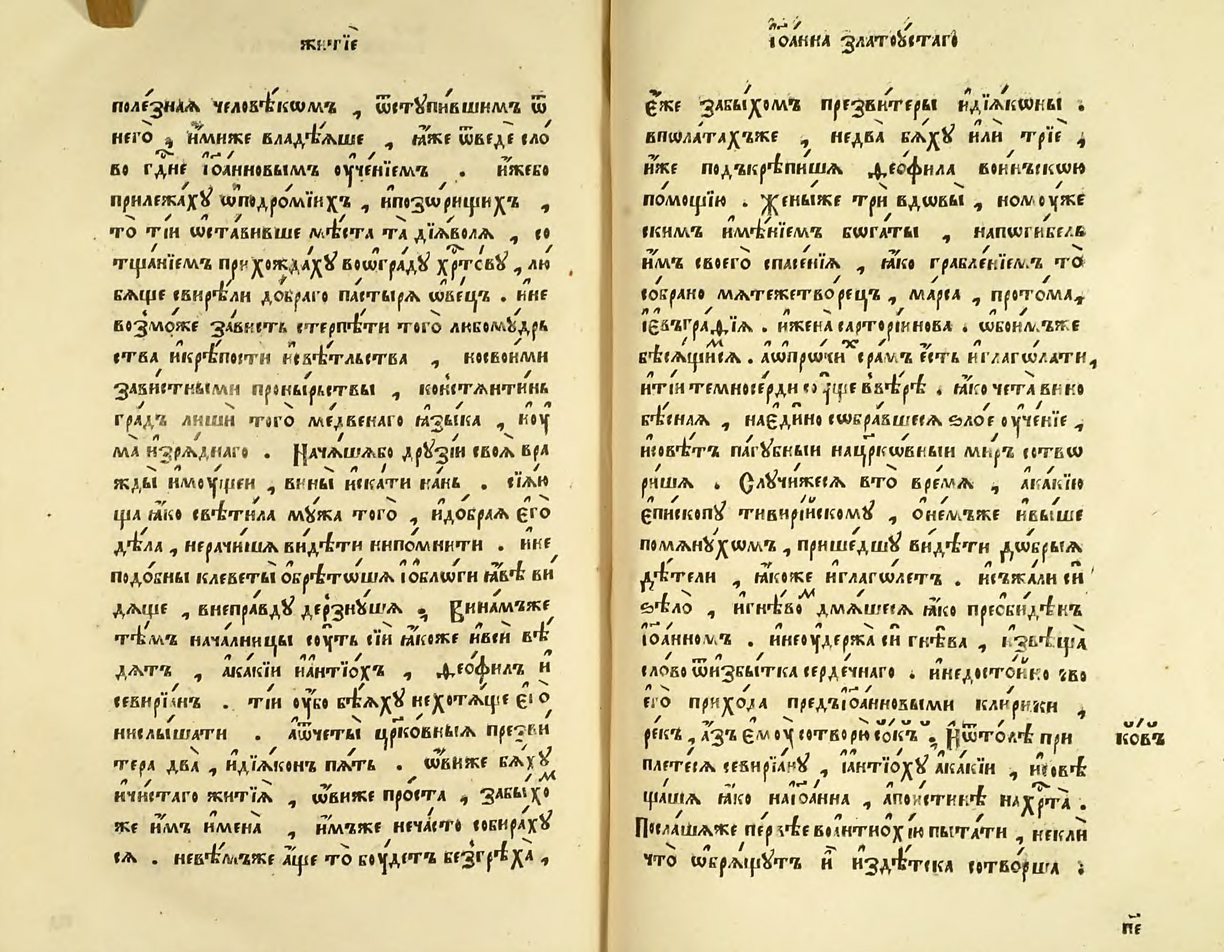 житїѐ
поле́знаѧ человѣ́кѡмъ , ѿстꙋпи́вшимъ ѿ
него̀ , и҆́миже владѣ́ѧше , ꙗ҆́же ѿведѐ сло́
во гд҇не і҆ѡа́нновымъ ᲂу҆че́нїемъ . и҆́жебо
прилежа́хꙋ ѡ҆подро́мїихъ , и҆позѡ́рищихъ ,
то̀ ті́и ѡ҆ста́вивше мѣ́ста та̀ дїѧ́волѧ , со
тща́нїемъ прихожда́хꙋ воѡ҆гра́дꙋ хр҇то́вꙋ , лю
бѧ́ще свирѣ́ли до́браго па́стырѧ ѡ҆ве́цъ . и҆не
возмо́же за́висть стерпѣ́ти того̀ любомꙋ́дрь
ства и҆крѣ́пости и҆свѣ́тльства , носвои́ми
зави́стными проны́рьствы , ко́нстѧнти́нь
гра́дъ лишѝ того̀ ме́двенаго ꙗ҆зы́ка , и҆ᲂу҆
ма̀ и҆зрѧ́днаго . Нача́шѧбо дрꙋ́зїи своѧ̀ вра
жды̀ и҆мꙋ́щеи , вины̀ и҆ска́ти на́нь . сїѧ́ю
ща ꙗ҆́ко свѣти́ла мꙋ́жа того̀ , и҆до́браѧ є҆го̀
дѣ́ла , нерачи́шѧ ви́дѣти нипо́мнити . и҆не
подо́бны клеветы̀ ѡ҆брѣто́шѧ і҆ѡбло́ги ꙗ҆́вѣ ви́
дѧще , внепра́вдꙋ де́рзнꙋшѧ . Вина́мъже
тѣ́мъ нача́лницы сꙋ́ть сі́и ꙗ҆́коже и҆всѝ вѣ́
дѧтъ , а҆ка́кїи и҆а҆нтїо́хъ , ѳео́филъ и҆
севирїѧ́нъ . ті́и ᲂу҆́бо бѣ́ѧхꙋ нехотѧ́ще є҆го̀
нислы́шати . а҆ѿче́ты цр҃ко́вныѧ презви́
тера два̀ , и҆дїѧ́конъ пѧ́ть . ѡ҆́виже бѧ́хꙋ
и҆чи́стаго житїѧ̀ , ѡ҆́виже про́ста , забы́хо
же и҆̀мъ и҆мена̀ , и҆́мъже неча́сто собира́хꙋ
сѧ . невѣ́мъже а҆́ще то̀ бꙋ́детъ безгрѣха̀ ,
і҆ѡа́нна златоꙋ́стаго
є҆́же забы́хомъ презви́теры и҆дїѧ́коны .
впола́тахъже , недва̀ бѧ́хꙋ и҆лѝ трїѐ ,
и҆́же подъкрѣпи́шѧ ѳео́фила во́иньскою
по́мощїю . Жены́же трѝ вдовы̀ , номꙋ́же
скимъ и҆мѣ́нїемъ бога́ты , напоги́бель
и҆̀мъ своего̀ спасе́нїѧ , ꙗ҆́ко грабле́нїемъ то̀
со́брано мѧтежетво́рецъ , ма́рса , прото́ма ,
і҆є҆въгра́фїѧ . и҆жена̀ сарторі́инова . ѡ҆бои́мъже
бѣсѧ́щимсѧ . а҆ѡ҆про́чихъ сра́мъ є҆́сть и҆глаго́лати ,
и҆ті́и темносе́рди сꙋ́ще ввѣ́рѣ . ꙗ҆́ко чета̀ вино
бѣ́снаѧ , нає҆ди́но собра́вшеесѧ ѕло́е ᲂу҆че́нїе ,
и҆совѣ́тъ па́гꙋбныи нацр҃ко́вныи ми́ръ сотво
ри́шѧ . Слꙋчи́жесѧ вто̀ вре́мѧ , а҆ка́кїю
є҆пи́скопꙋ тивирі́искомꙋ , ѡ҆не́мъже и҆вы́ше
помѧнꙋ́хомъ , прише́дшꙋ ви́дѣти до́брыѧ
дѣ́тели , ꙗ҆́коже и҆глаго́летъ . и҆съжа́ли сѝ
ѕѣло̀ , и҆гнѣ́вомъ дмѧ́шесѧ ꙗ҆́ко преоби́дѣнъ
і҆ѡа́нномъ . и҆неᲂу҆держа̀ сѝ гнѣ́ва , и҆звѣща̀
сло́во ѿи҆збы́тка серде́чнаго . и҆недосто́йно сво
его̀ прихо́да предъі҆ѡа́нновыми кли́рики ,
ре́къ , а҆́зъ є҆мꙋ̀ сотворю̀ со́къ . И҆ѿто́лѣ при
ко́въ
плете́сѧ севирїѧ́нꙋ , і҆а҆нтїо́хꙋ а҆ка́кїи , и҆совѣ
ща́шѧ ꙗ҆́ко наі҆ѡа́нна , а҆пои́стинѣ нахр҇та̀ .
Посла́шѧже пе́рвѣе воа҆нтиохі́ю пыта́ти , неклѝ
что̀ ѡ҆брѧ́щꙋтъ и҆̀ и҆здѣ́тска сотво́рша :
п҃е